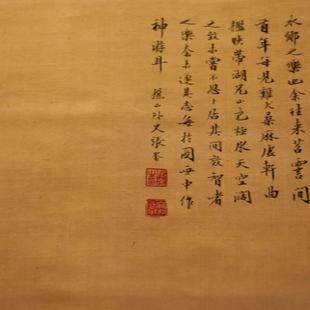 水鄉之樂也余往來苕霅間
百年每見雞犬桑麻虛軒曲
檻映帶湖光山色極水天空闊
之致未嘗不思卜居其間效智者
之樂奈未遂其志每於圖畫中作
神遊耳 樵山外史張崟